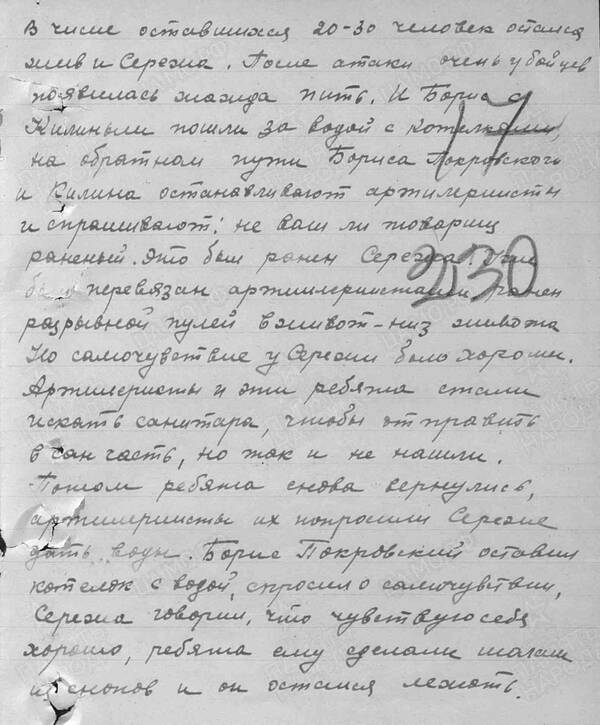 В числе оставшихся 20-30 человек остался
жив и Сережа. После атаки очень у бойцев
появилась жажда пить. И Борис с
Килиным пошли за водой с котелками,
17
на обратном пути Бориса Покровского
и Килина останавливают артилеристы
и спрашивают: не ваш ли товарищ
раненый. Это был ранен Сережа. Он
230
был перевязан артиллеристами ранен
разрывной пулей в живот-низ живота
Но самочувствие у Сережи было хорошим.
Артилеристы и эти ребята стали
искать санитара, чтобы отправить
в сан часть, но так и не нашли.
Потом ребята снова вернулись,
артилеристы их попросили Сереже
дать воды. Борис Покровский оставил
котелок с водой, спросил о самочувствии,
Сережа говорил, что чувствую себя
хорошо, ребята ему сделали шалаш
из снопов и он остался лежать.